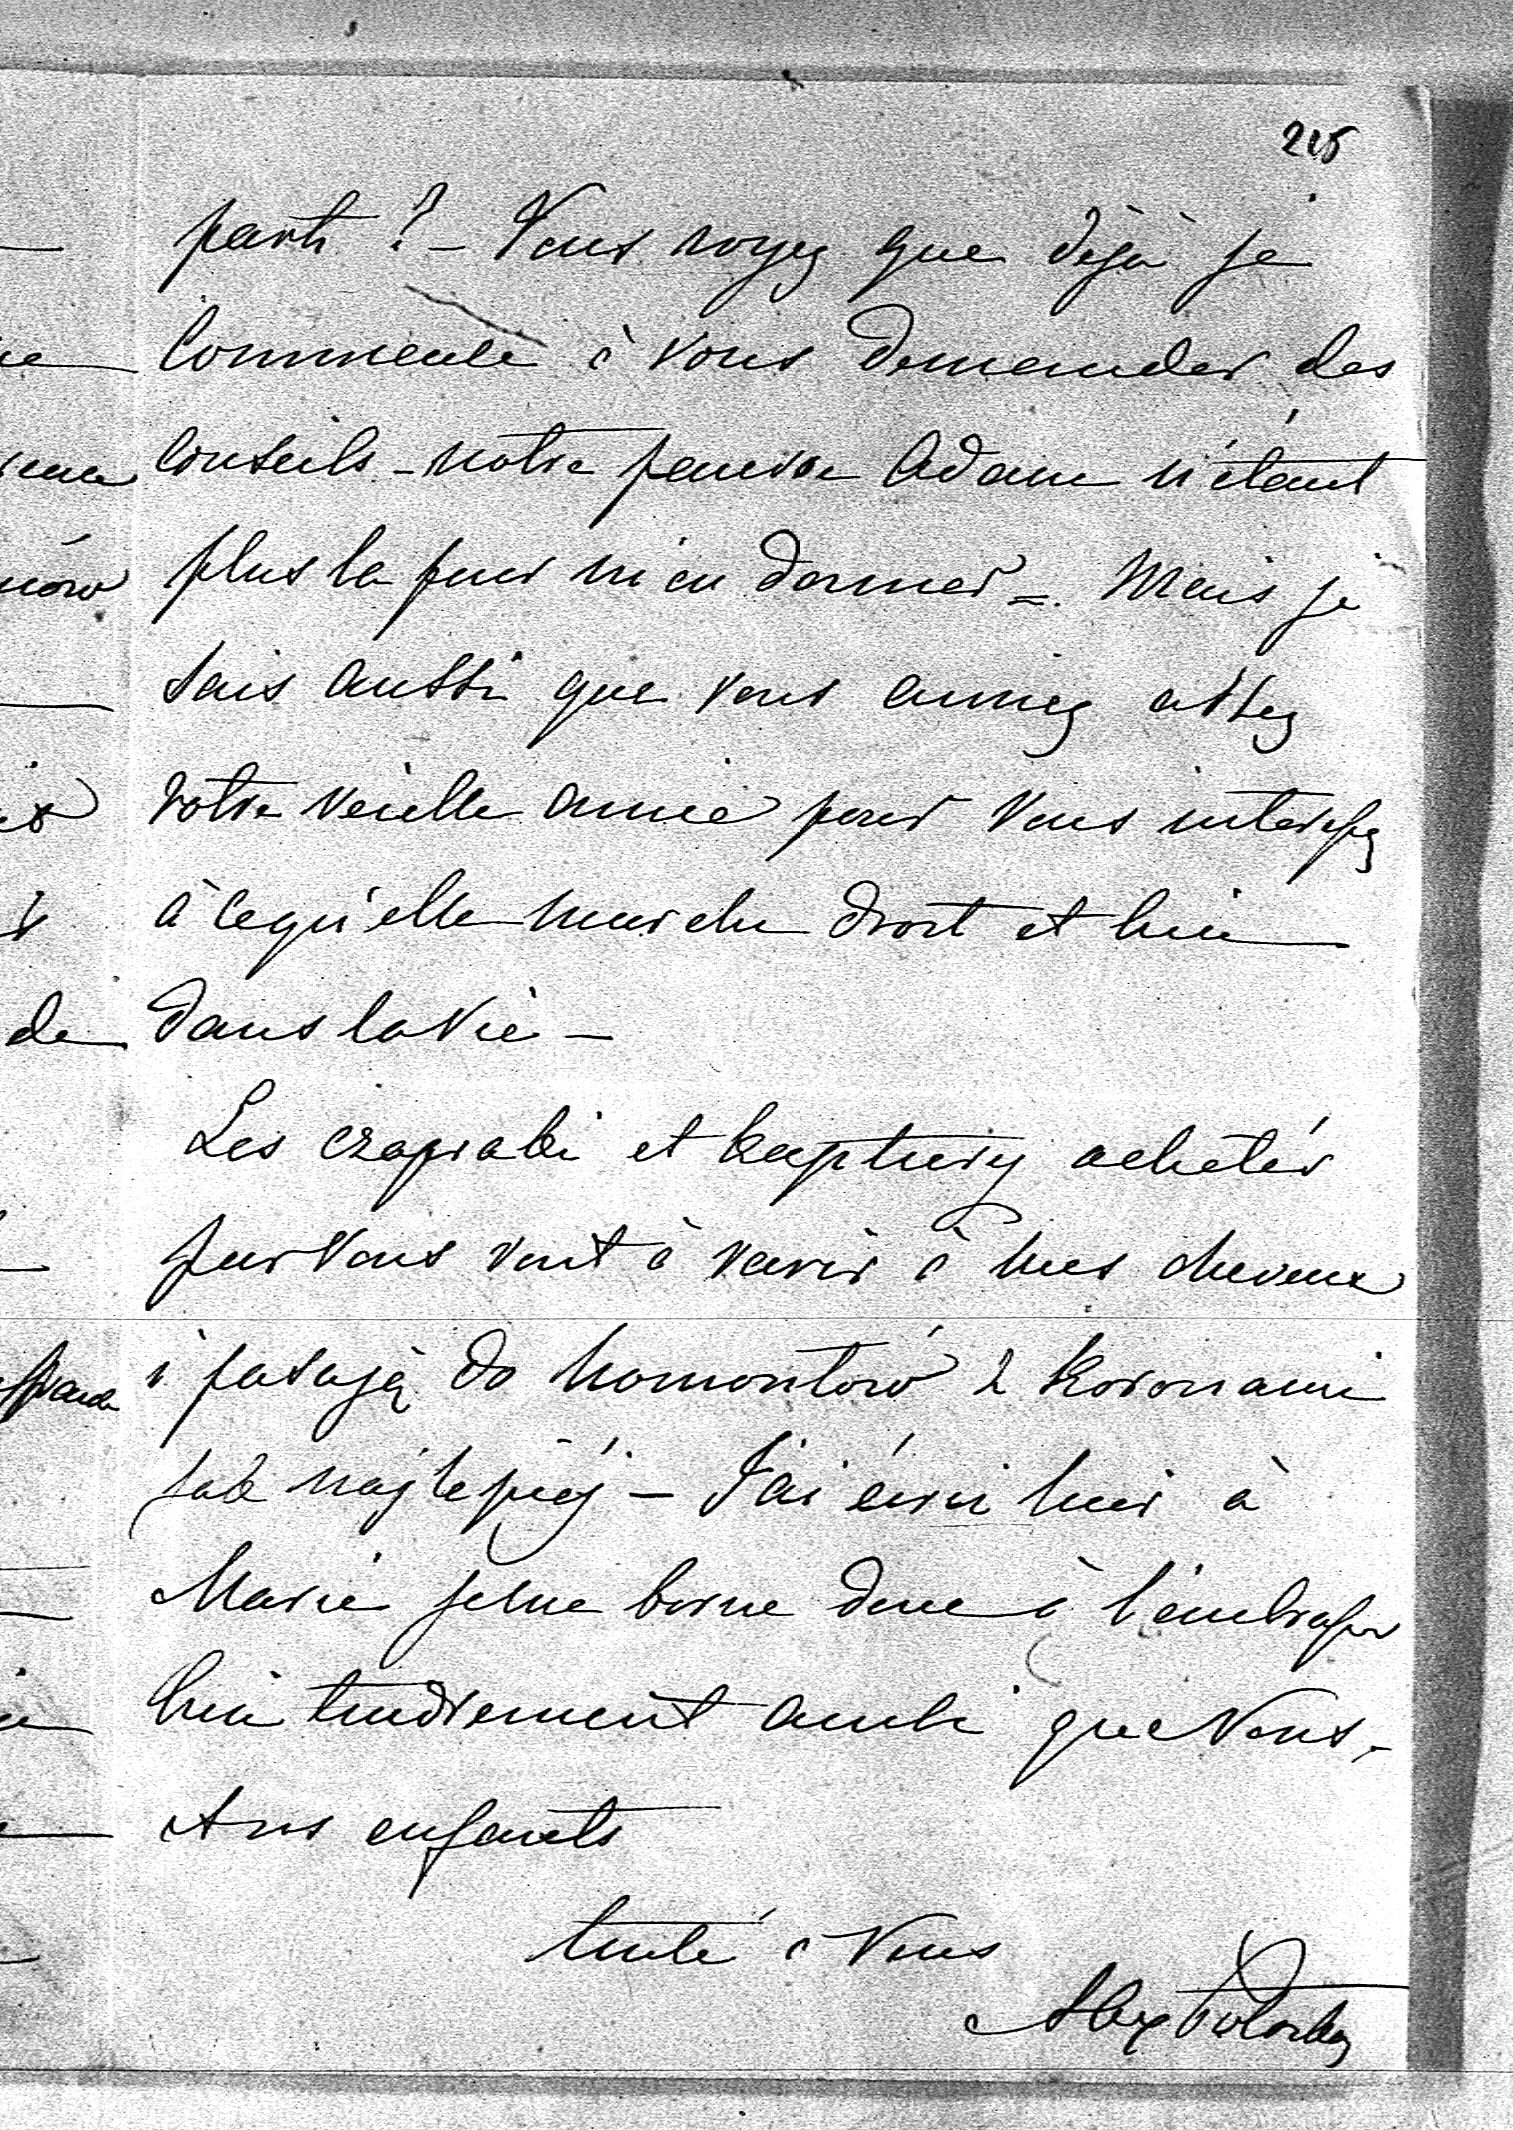 215
parti ? – Vous voyez que déjà je
commence à vous demander des
conseils – notre pauvre Adam n'étant
plus la pour m'en donner –. Mais je
sais aussi que vous aimez assez
votre vieille amie pour vous interessez
à ce qu'elle marche droit et bien
dans la vie –
Les czapraki et kaptury achetés
par vous vont à ravir à mes chevaux
i pasują do homontów z koronami
jak najlepiéj – J'ai écrit hier à
Marie je me borne donc à l'embrasser
bien tendrement ainsi que vous
et vos enfants
toute à vous
Alex
ue
mów
de